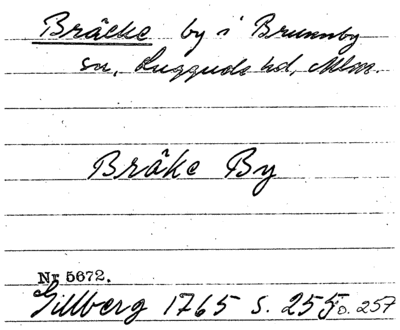 Bräcke by i Brunnby
sn, Luggude hd, Mlm.
Bräke By
Nr 5672.
Gillberg 1765 s. 255 o. 257